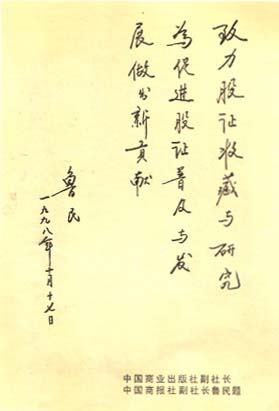 致力股证收藏与研究
為促进股证普及与发
展做出新贡献
鲁民
一九九八年十月十七日
中国商业出版社副社长
中国商报社副社长鲁民题